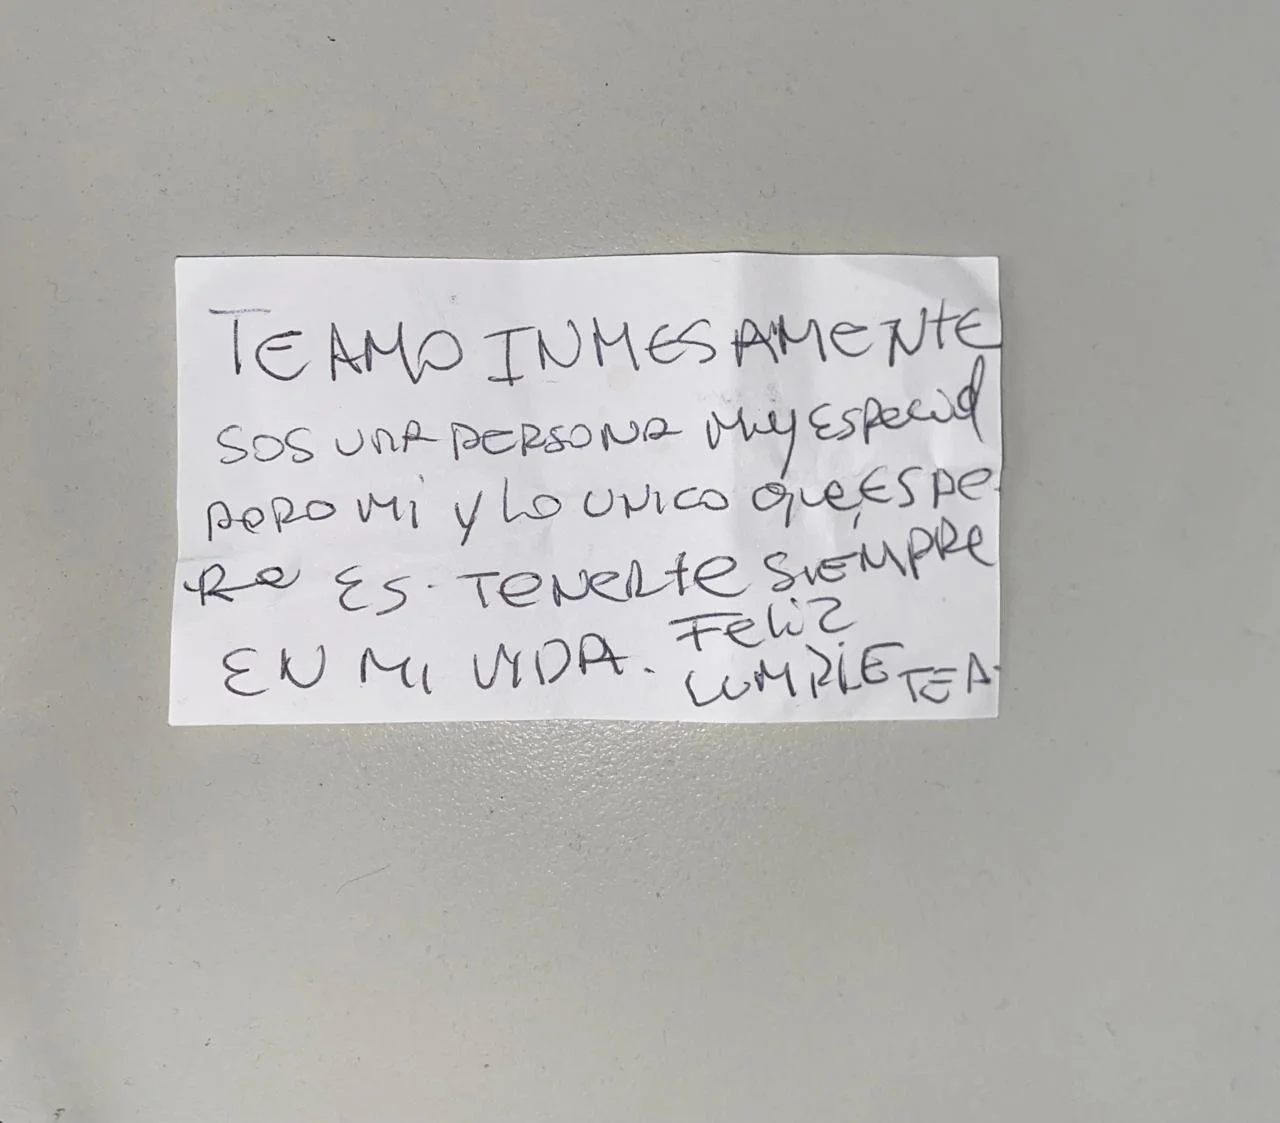 TE AMO INMESAMENTE
SOS UNA PERSONA MUY ESPECIAL
PERO MI Y LO UNICO QUE ESPE
RO ES. TENERTE SIEMPRE
EN MI VIDA. FELIZ
CUMPLE TEA.